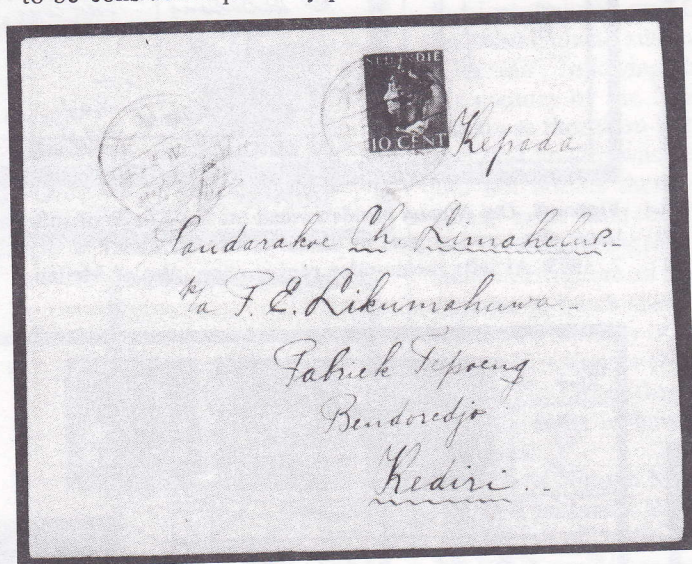 NED. INDIE
10 CENT
Kepada
Soudarakoe Ch. Limahelu.
p/a F. E. Likumahuwa
Fabriek Tepoeng
Bendoredjo
Kediri..